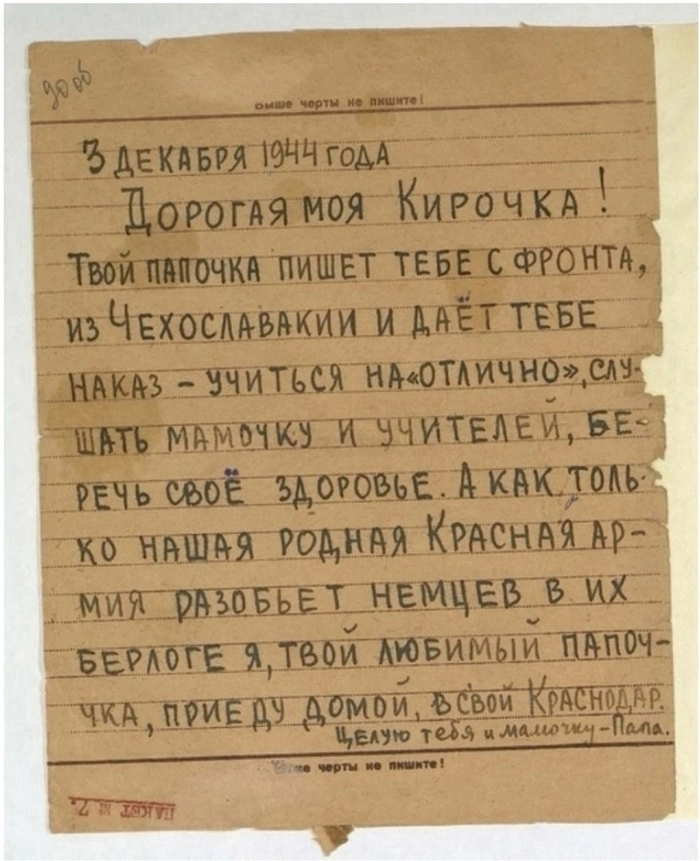 выше черты не пишите!
3 ДЕКАБРЯ 1944 ГОДА
ДОРОГАЯ МОЯ КИРОЧКА!
ТВОЙ ПАПОЧКА ПИШЕТ ТЕБЕ С ФРОНТА,
ИЗ ЧЕХОСЛАВАКИИ И ДАЁТ ТЕБЕ
НАКАЗ – УЧИТЬСЯ НА «ОТЛИЧНО», СЛУ-
ШАТЬ МАМОЧКУ И УЧИТЕЛЕЙ, БЕ-
РЕЧЬ СВОЁ ЗДОРОВЬЕ. А КАК ТОЛЬ-
КО НАШАЯ РОДНАЯ КРАСНАЯ АР-
МИЯ РАЗОБЬЕТ НЕМЦЕВ В ИХ
БЕРЛОГЕ Я, ТВОЙ ЛЮБИМЫЙ ПАПОЧ-
ЧКА, ПРИЕДУ ДОМОЙ, В СВОЙ КРАСНОДАР.
Целую тебя и мамочку – Папа.
черты не пишите!
ПАКЕТ № 7.